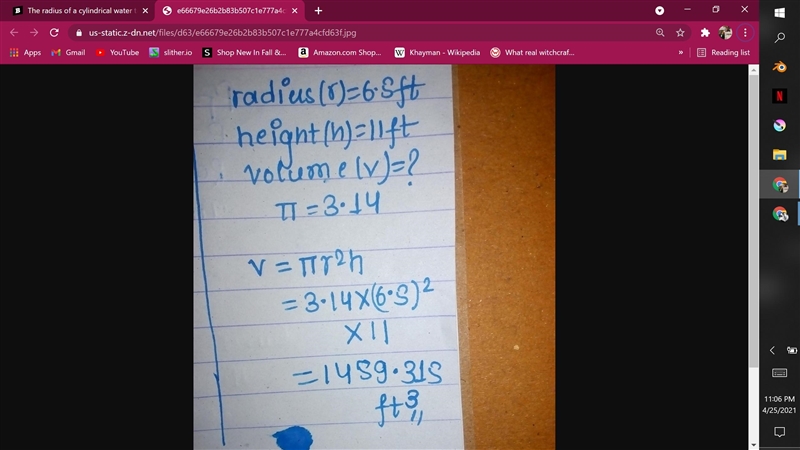 The radius of a cylindrical water t
e66679e26b2b83b507c1e777a4cfd
us-static.z-dn.net/files/d63/e66679e26b2b83b507c1e777a4cfd63f.jpg
Apps
Gmail
YouTube
slither.io
Shop New In Fall &...
Amazon.com Shop...
Khayman - Wikipedia
What real witchcraf...
Reading list
radius(r)=6.5ft
height(h)=11ft
volume(v)=?
π=3.14
v = πr2h
=3.14×(6.5)2
×11
=1459.315
ft3,,
11:06 PM
4/25/2021